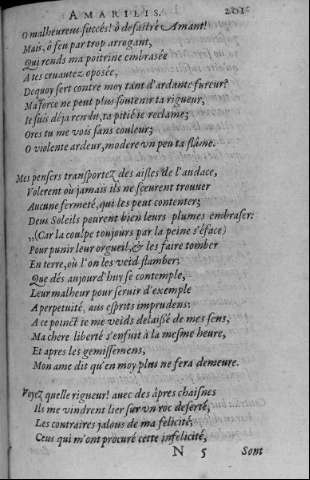 AMARILIS. 201
O malheureux succés! ô desastré Amant!
Mais, ô feu par trop arrogant,
Qui rends ma poitrine embrasée
A tes cruautez oposée,
Dequoy sert contre moy tant d'ardante fureur?
Ma force ne peut plus soutenir ta rigueur,
Ie suis déja rendu, ta pitié ie reclame;
Ores tu me vois sans couleur;
O violente ardeur, modere un peu ta flâme.
Mes pensers transportez des aisles de l'audace,
Volerent où jamais ils ne sçeurent trouuer
Aucune fermeté, qui les peut contenter;
Deux Soleils peurent bien leurs plumes embraser:
,,(Car la coulpe toujours par la peine s'éface)
Pour punir leur orgueil, & les faire tomber
En terre, où l'on les veid flamber;
Que dés aujourd'huy se contemple,
Leur malheur pour seruir d'exemple
A perpetuité, aus esprits imprudens;
A ce poinct ie me veids delaissé de mes sens,
Ma chere liberté s'enfuit à la mesme heure,
Et apres les gemissemens,
Mon ame dit qu'en moy plus ne fera demeure.
Voyez quelle rigueur! auec des âpres chaisnes
Ils me vindrent lier sur un roc deserté,
Les contraires jalous de ma felicité,
Ceus qui m'ont procuré cette infelicité,
N 5 Sont